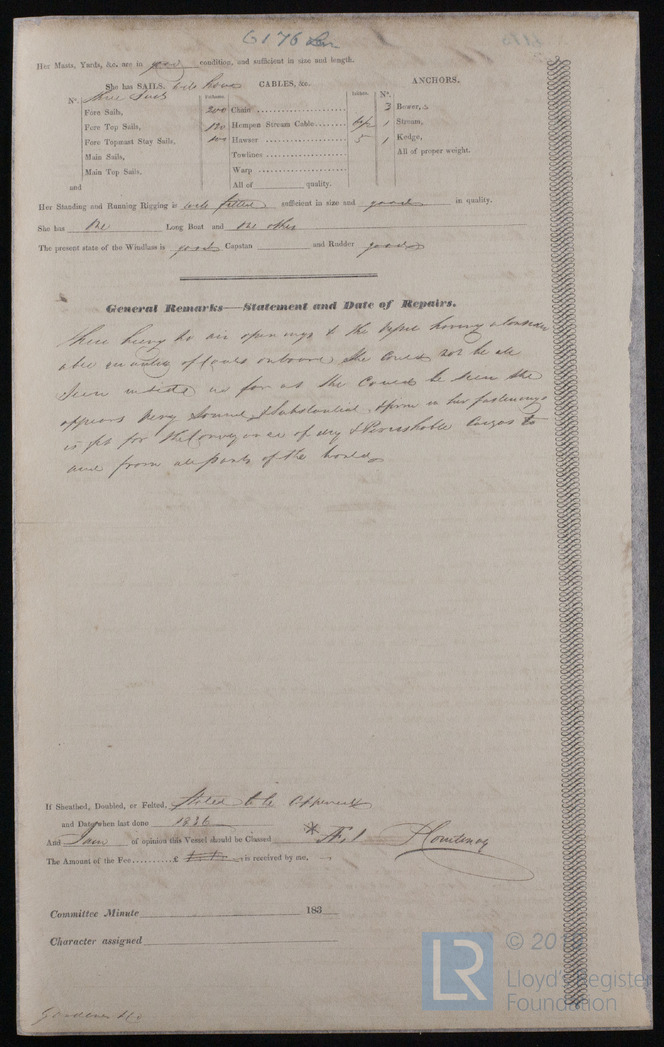 6176
Her Masts, Yards, &c. are in good condition, and sufficient in size and length.
She has SAILS. CABLES, &c. ANCHORS.
Nº. Fathoms. Inches. Nº.
Fore Sails, 200 Chain 3 Bower,s
Fore Top Sails, 120 Hempen Stream Cable 1 Stream,
Fore Topmast Stay Sails, 100 Hawser 5 1 Kedge,
Main Sails, Towlines All of proper weight.
Main Top Sails, Warp
and All of quality.
Her Standing and Running Rigging is well fitted sufficient in size and good in quality.
She has One Long Boat and One other
The present state of the Windlass is good Capstan and Rudder good
General Remarks—Statement and Date of Repairs.
there being no air openings & the Vessel having a consider
able quantity of onboard, She Could not be
Seen inside as far as She Could be Seen She
appears Very Sound & Substantial & firm in her fastenings
is fit for the Conveyance of dry & Perishable Cargos to
and from all parts of the World
If Sheathed, Doubled, or Felted,
and Date when last done 1836
And I am of opinion this Vessel should be Classed * Æ 1 Courtenay
The Amount of the Fee £ is received by me,
Committee Minute 183
Character assigned
LR
© 20
Lloyd's Register
Foundation